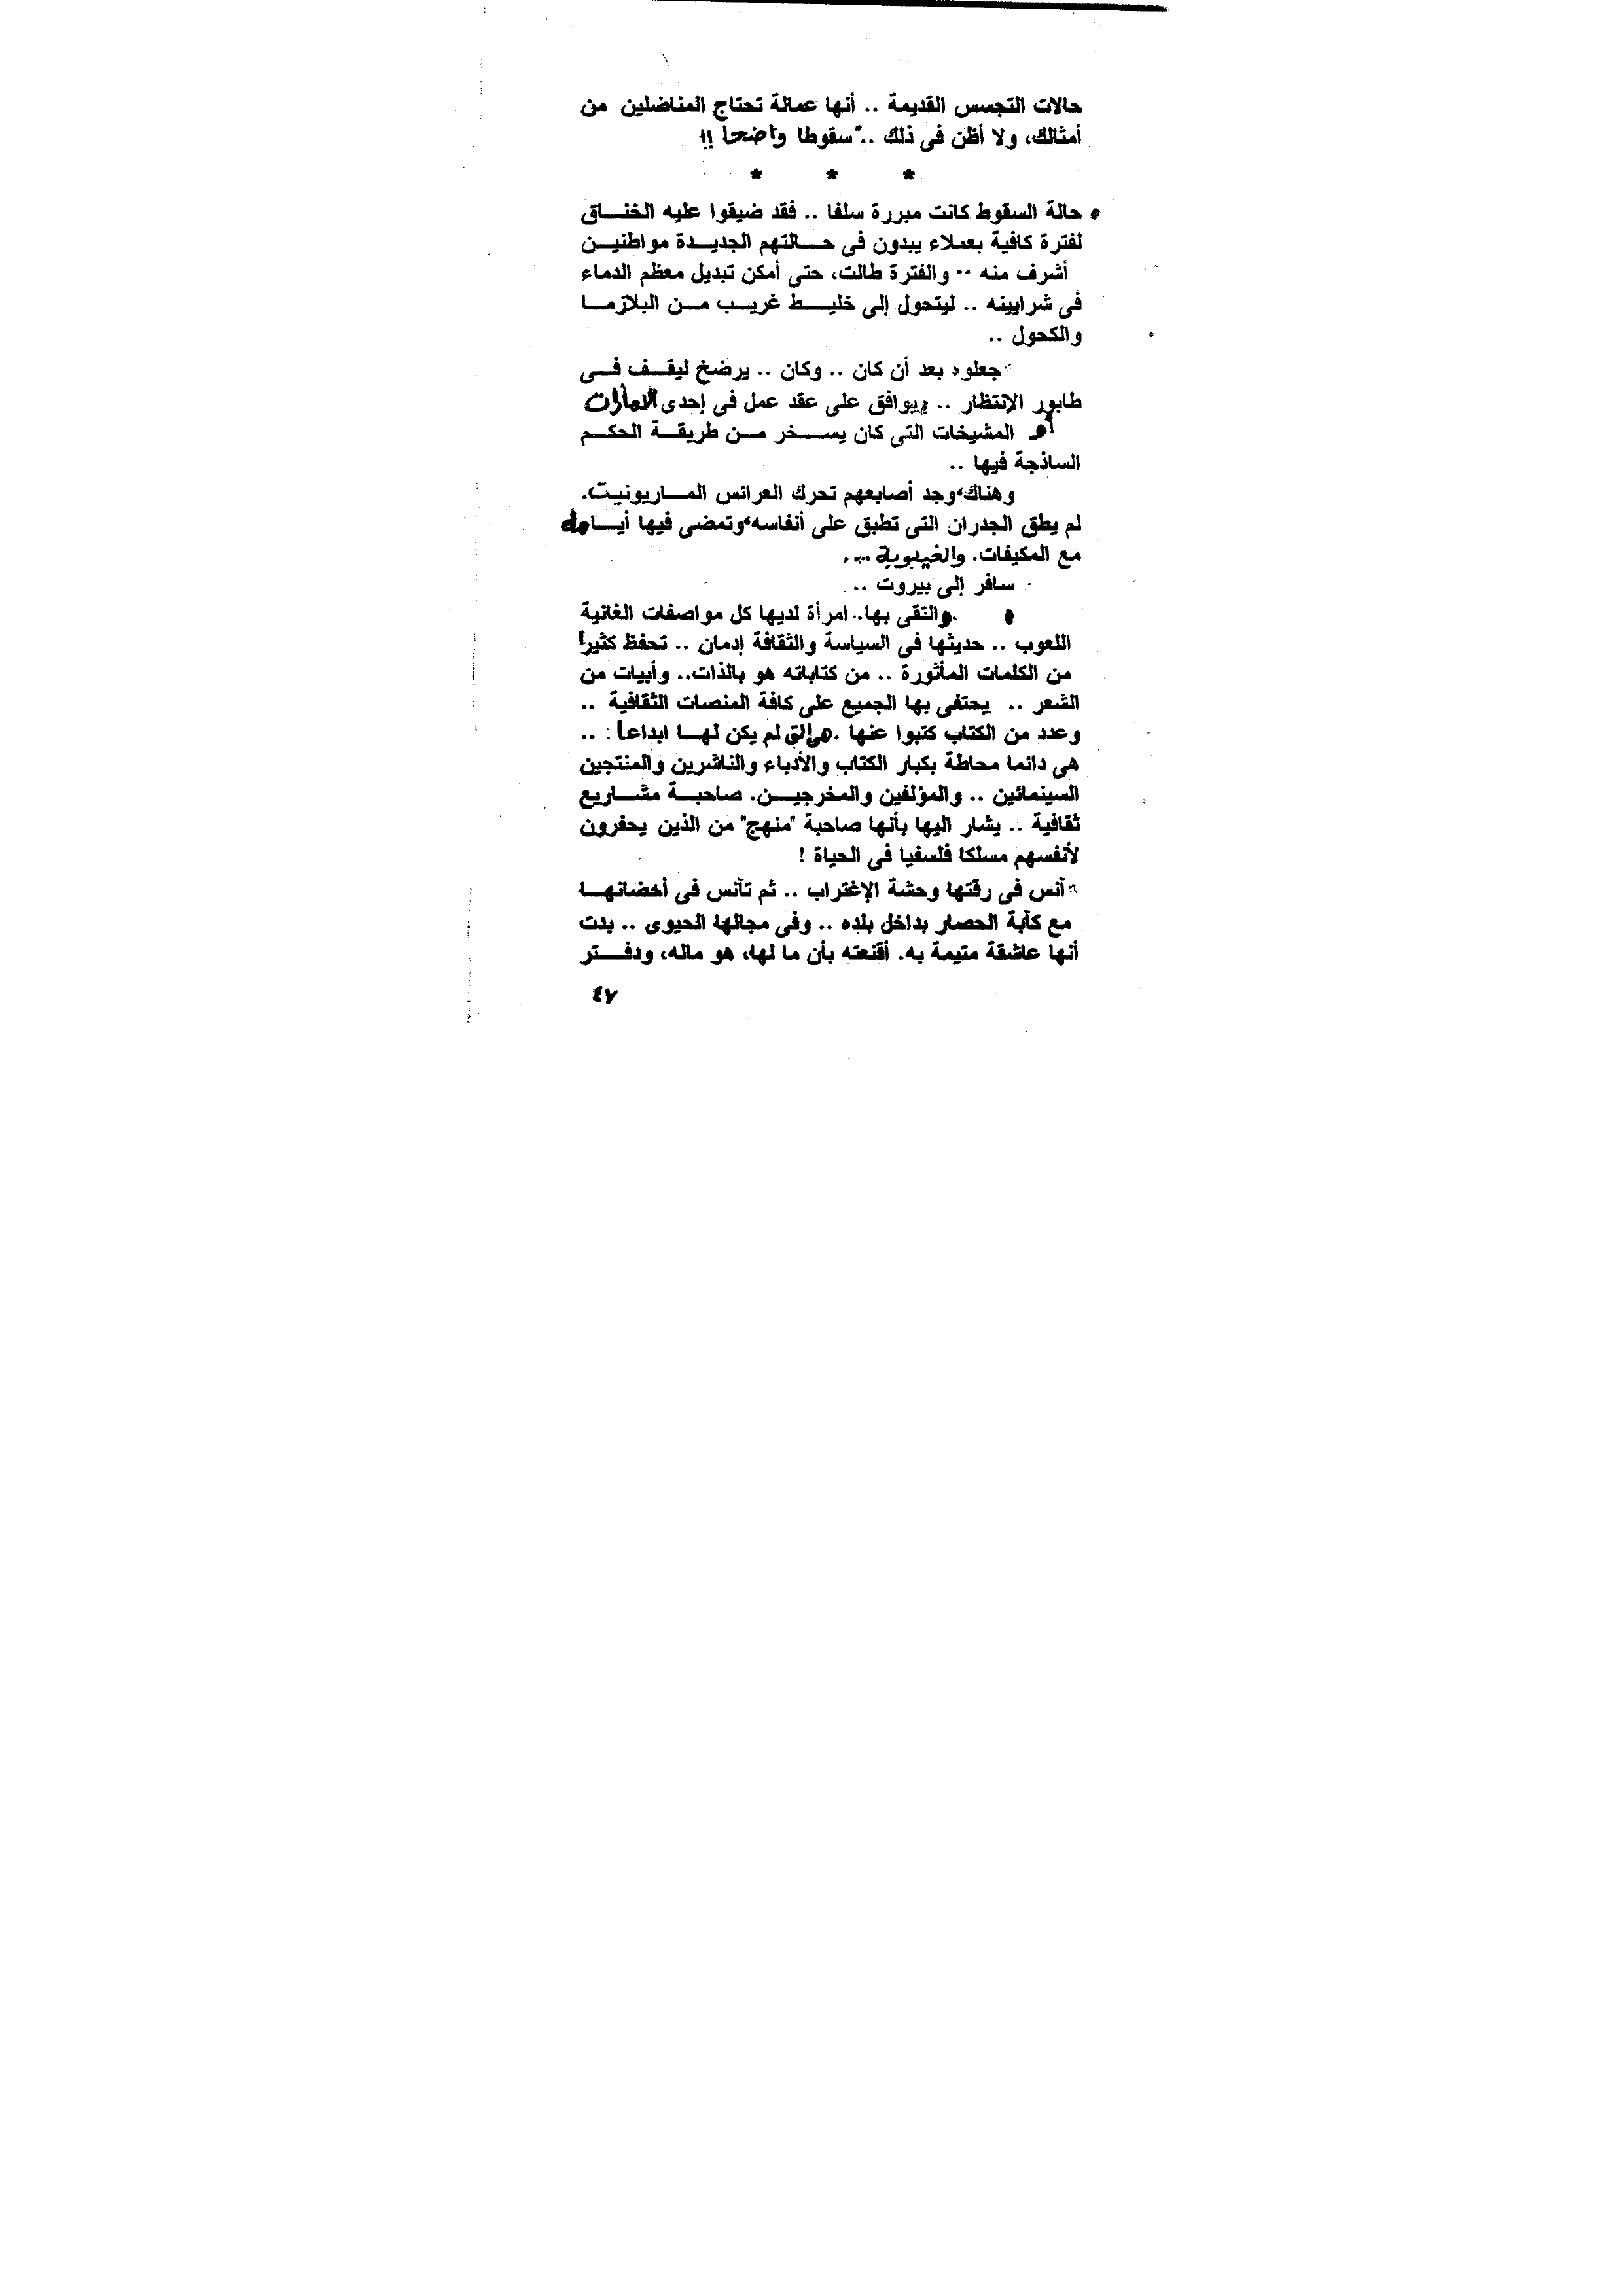 حالات التجسس القديمة .. أنها عمالة تحتاج المناضلين من
أمثالك، ولا أظن فى ذلك .. سقوطا واضحا !!
* * *
• حالة السقوط كانت مبررة سلفا .. فقد ضيقوا عليه الخناق
لفترة كافية بعملاء يبدون فى حالتهم الجديدة مواطنين
أشرف منه .. والفترة طالت، حتى أمكن تبديل معظم الدماء
فى شرايينه .. ليتحول إلى خليط غريب من البلازما
والكحول ..
جعلوه بعد أن كان .. وكان .. يرضخ ليقف فى
طابور الإنتظار .. يوافق على عقد عمل فى إحدى الامارات
أو المشيخات التى كان يسخر من طريقة الحكم
الساذجة فيها ..
وهناك، وجد أصابعهم تحرك العرائس الماريونيت.
لم يطق الجدران التى تطبق على أنفاسه، وتمضى فيها أيامه
مع المكيفات. والغيبوبة ...
سافر إلى بيروت ..
• والتقى بها.. امرأة لديها كل مواصفات الغانية
اللعوب .. حديثها فى السياسة والثقافة إدمان .. تحفظ كثيراً
من الكلمات المأثورة .. من كتاباته هو بالذات.. وأبيات من
الشعر .. يحتفى بها الجميع على كافة المنصات الثقافية ..
وعدد من الكتاب كتبوا عنها . لم يكن لها ابداعا ..
هى دائما محاطة بكبار الكتاب والأدباء والناشرين والمنتجين
السينمائين .. والمؤلفين والمخرجين. صاحبة مشاريع
ثقافية .. يشار اليها بأنها صاحبة "منهج" من الذين يحفرون
لأنفسهم مسلكا فلسفيا فى الحياة !
آنس فى رقتها وحشة الإغتراب .. ثم تآنس فى أخضانها
مع كآبة الحصار بداخل بلده .. وفى مجالها الحيوى .. بدت
أنها عاشقة متيمة به. أقنعته بأن ما لها، هو ماله، ودفتر
٤٧